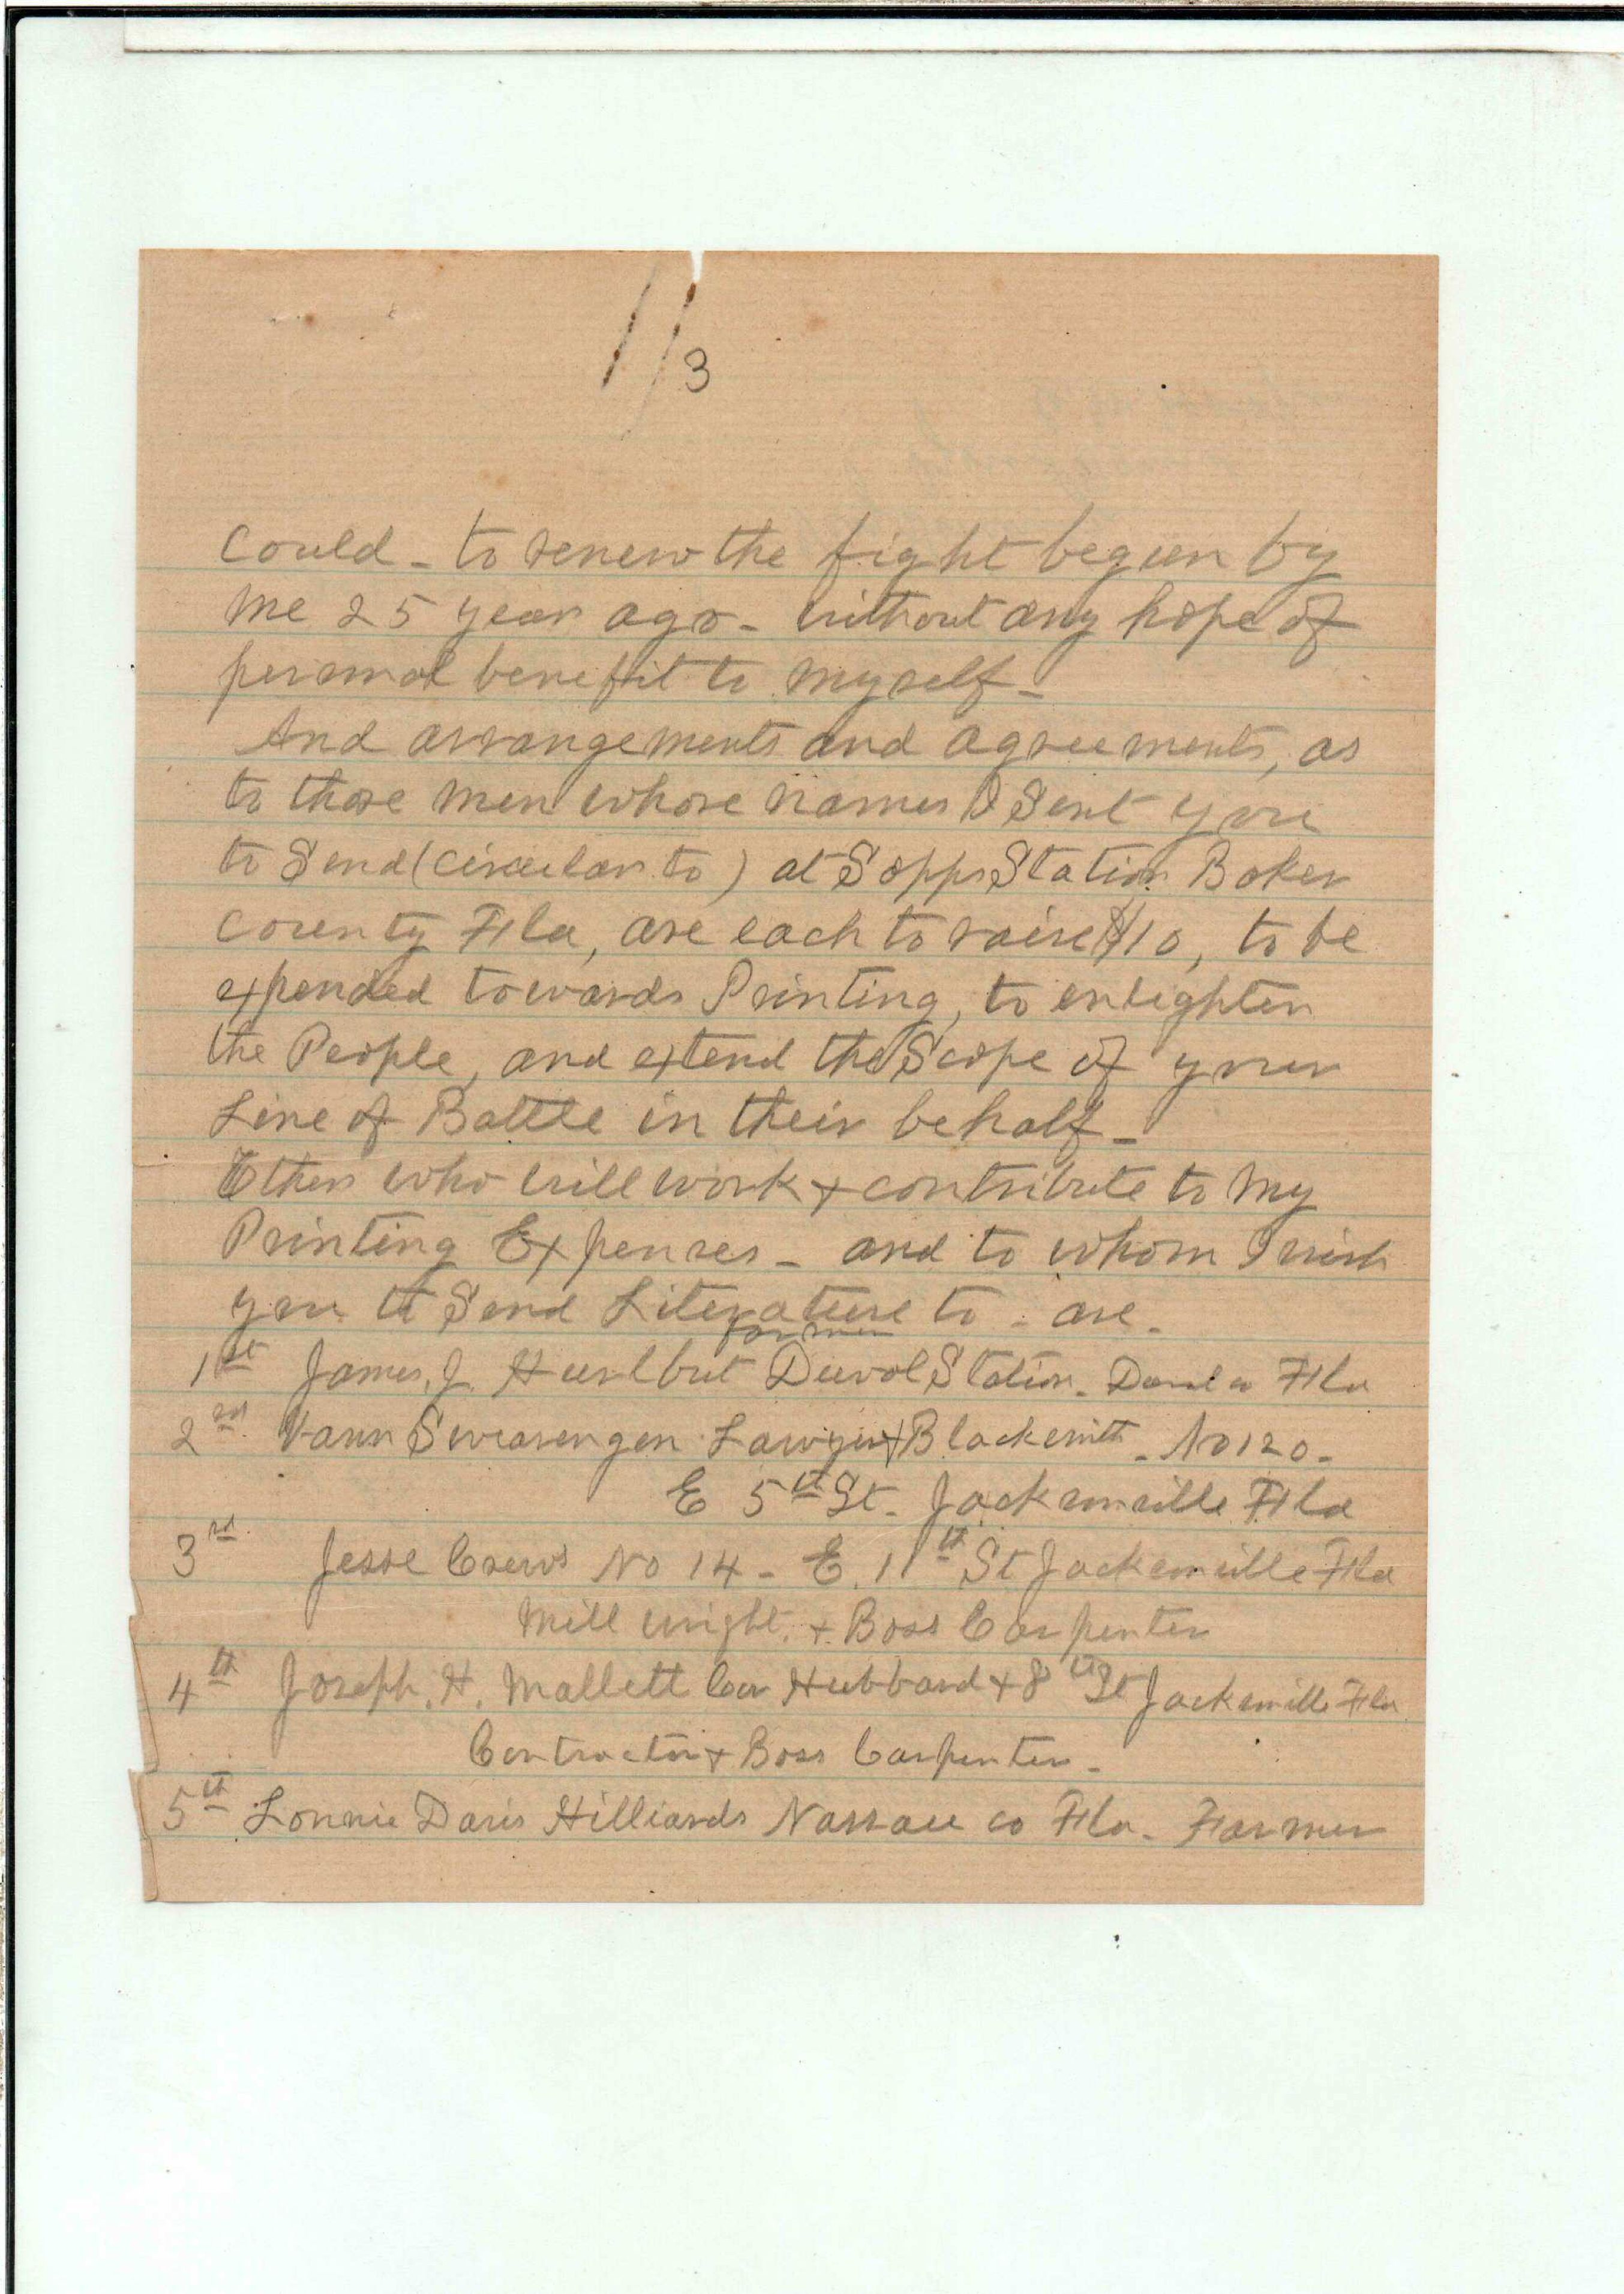 3
Could - to renew the fight begun by
me 25 years ago - without any hope of
personal benefit to myself -
And arrangements and agreements, as
to those men whose names I Sent you
to Send (circular to) at Sapps Station Baker
County Fla, are each to raise $10, to be
expended towards Printing, to enlighten
the People, and extend the Scope of your
Line of Battle in their behalf -
Others who will work + contribute to My
Printing Expenses - and to whom I wish
you to Send Literature to - are -
Farmer
1st James. J. Hurlbut Duval Station - Duval co Fla
2nd Vann Swearengen Lawyer + Blacksmith - No 120 -
E 5th St. Jacksonville Fla
3rd Jesse Crews No 14 - E. 11th St Jacksonville Fla
Mill wright. + Boss Carpenter
4th Joseph. H. Mallett Cor Hubbard + 8th St Jacksonville Fla
Contractor + Boss Carpenter -
5th Lonnie Davis Hilliards Nassau co Fla - Farmer